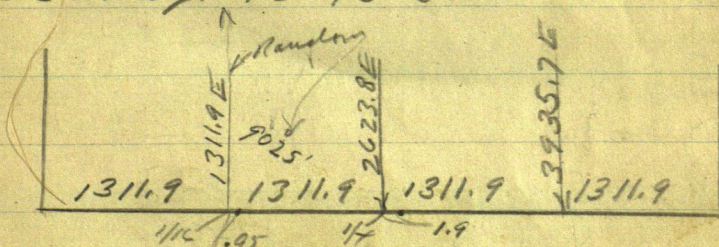 Random
1311.9 E
2623.8 E
3935.7 E
90 25'
1311.9 1311.9 1311.9 1311.9
1/16 .95 1/4 1.9